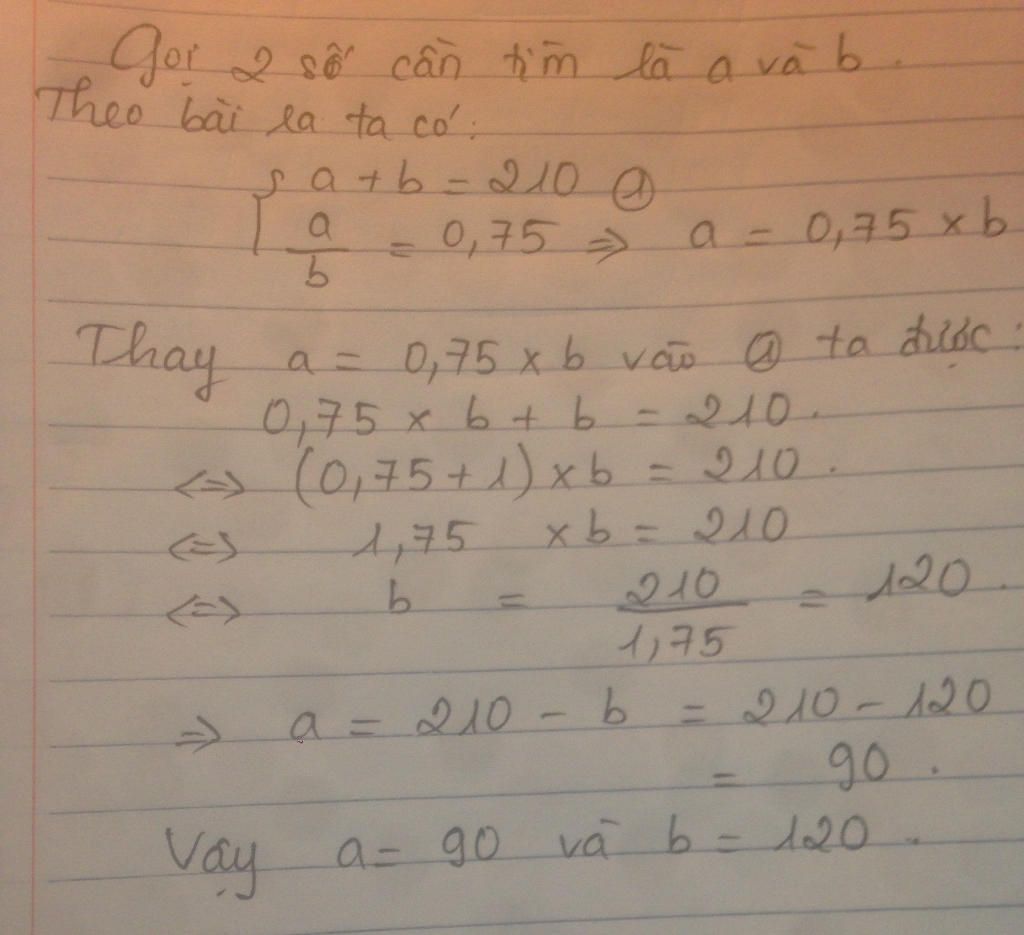 Gọi 2 số cần tìm là a và b.
Theo bài ra ta có:
{ a + b = 210 ⓐ
a/b = 0,75 => a = 0,75 × b
Thay a = 0,75 × b vào ⓐ ta được:
0,75 × b + b = 210.
<=> (0,75 + 1) × b = 210.
<=> 1,75 × b = 210
<=> b = 210/1,75 = 120.
=> a = 210 - b = 210 - 120
= 90.
Vậy a = 90 và b = 120.